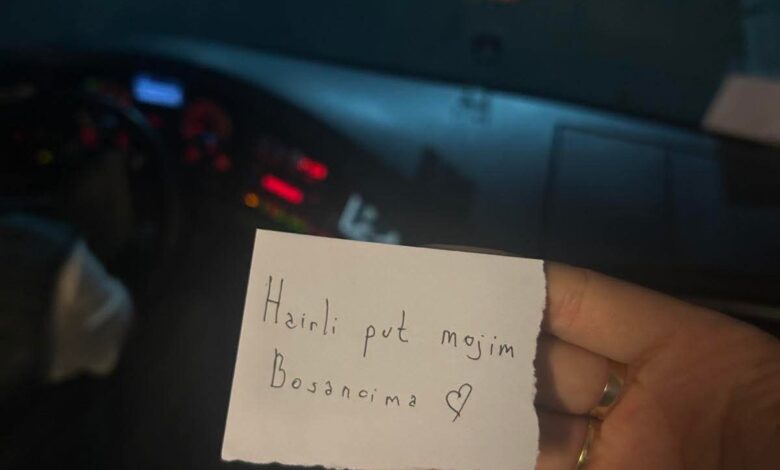 Hairli put mojim
Bosancima ♡